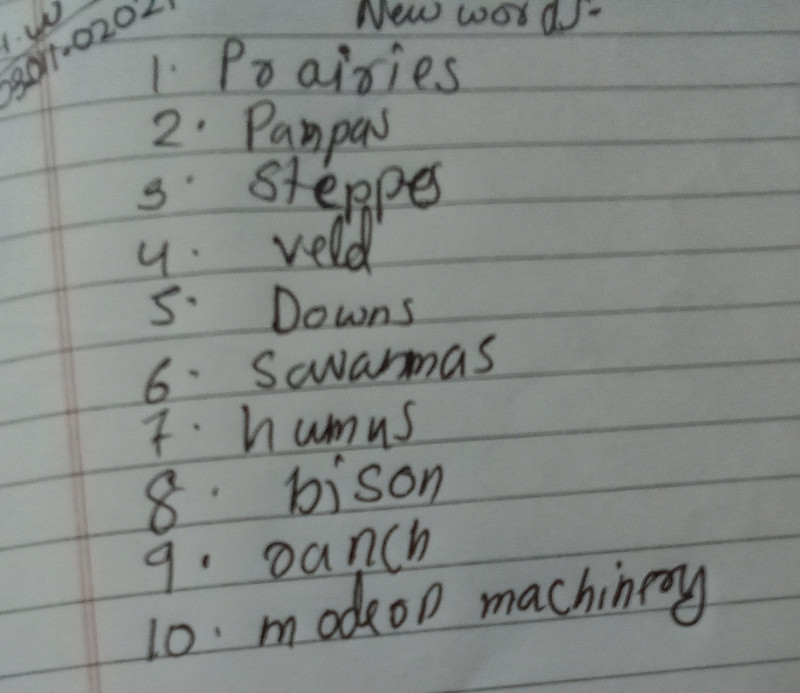 New words-
1. Prairies
2. Pampas
3. Steppes
4. veld
5. Downs
6. Savannas
7. humus
8. bison
9. ranch
10. modern machinery